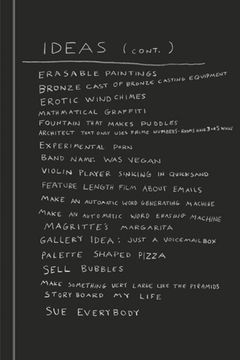 IDEAS (CONT.)
ERASABLE PAINTINGS
BRONZE CAST OF BRONZE CASTING EQUIPMENT
EROTIC WIND CHIMES
MATHMATICAL GRAFFITI
FOUNTAIN THAT MAKES PUDDLES
ARCHITECT THAT ONLY USES PRIME NUMBERS-ROOMS HAVE
EXPERIMENTAL PORN
BAND NAME: WAS VEGAN
VIOLIN PLAYER SINKING IN QUICKSAND
FEATURE LENGTH FILM ABOUT EMAILS
MAKE AN AUTOMATIC WORD GENERATING MACHINE
MAKE AN AUTOMATIC WORD ERASING MACHINE
MAGRITTE'S MARGARITA
GALLERY IDEA: JUST A VOICEMAILBOX
PALETTE SHAPED PIZZA
SELL BUBBLES
MAKE SOMETHING VERY LARGE LIKE THE PYRAMIDS
STORYBOARD MY LIFE
SUE EVERYBODY